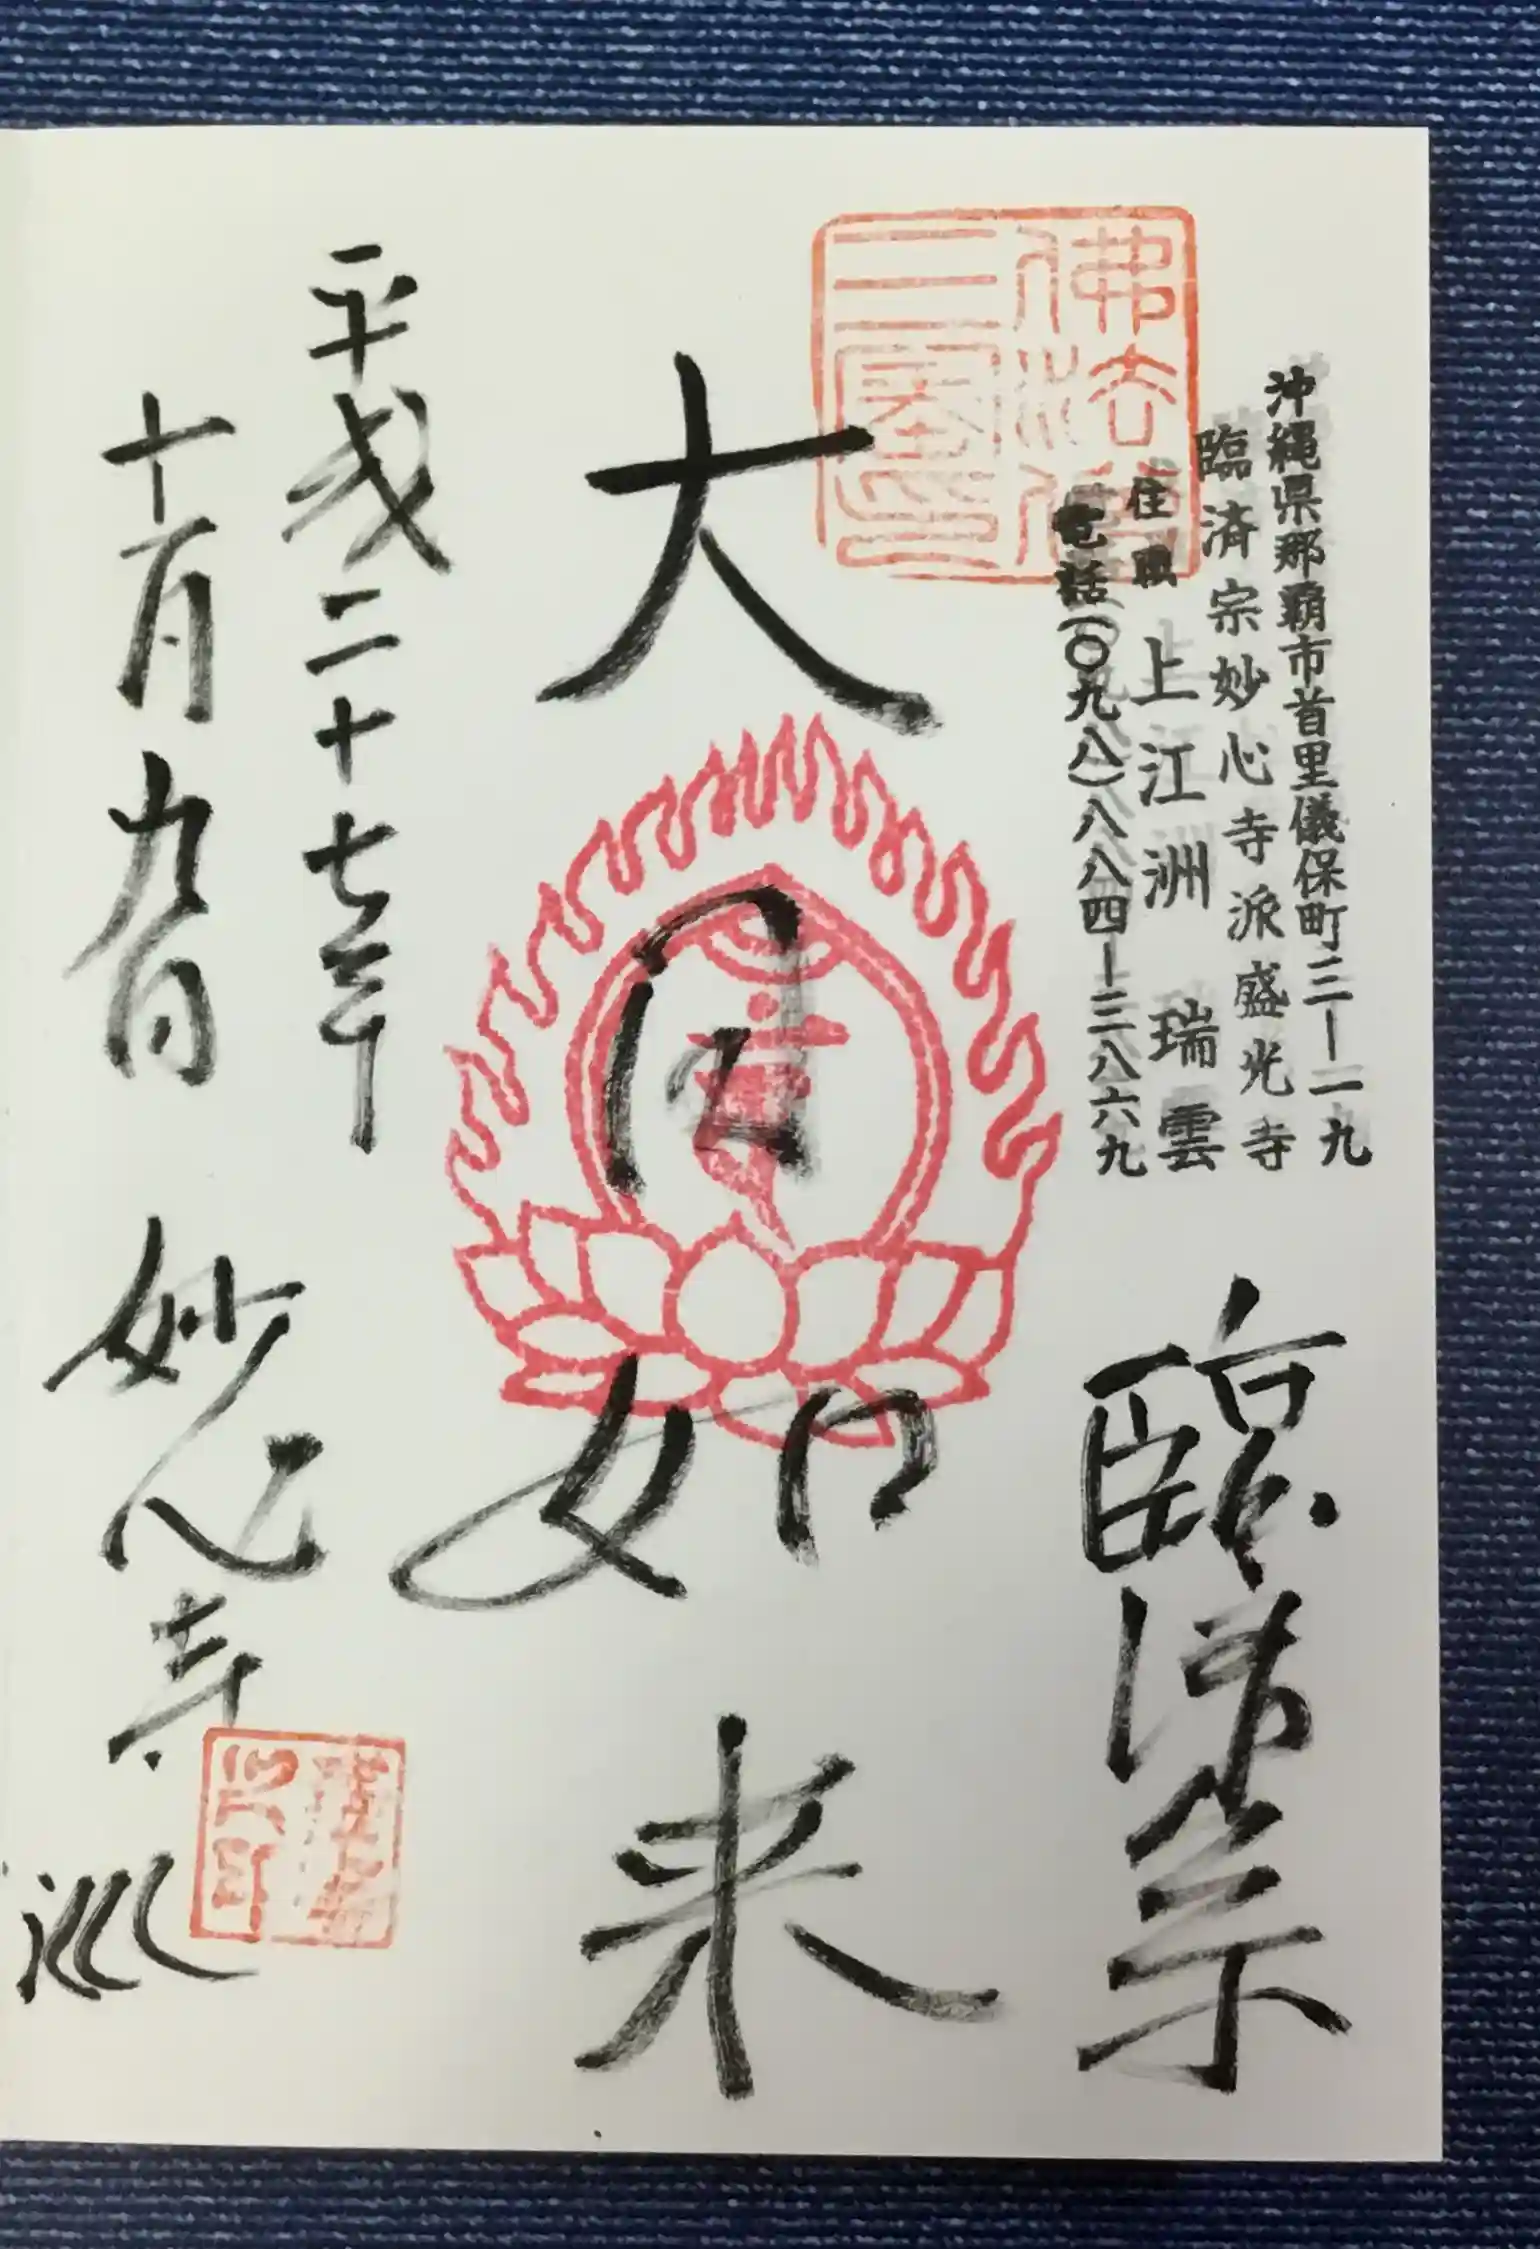 沖縄県那覇市首里儀保町三ー一九
臨済宗妙心寺派盛光寺
住職 上江洲 瑞雲
電話(〇九八)八八四ー三八六九
佛法僧
三寳印
臨済宗
大日如来
平成二十七年
十一月九日 妙心寺
巡